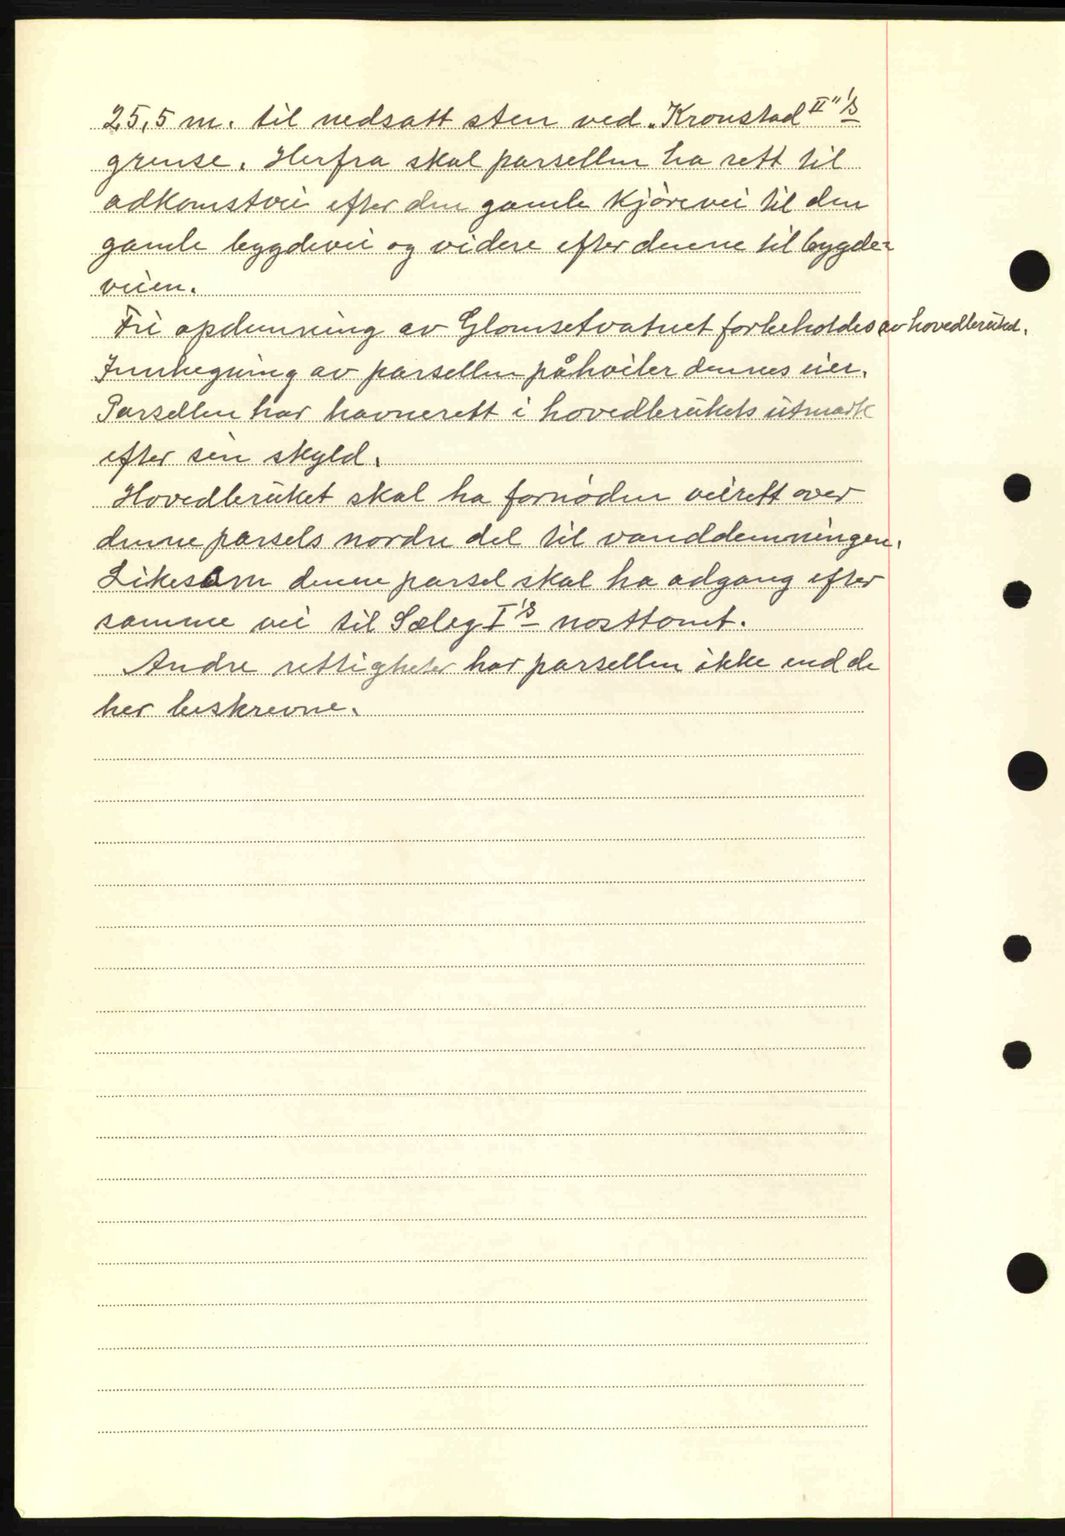 25,5 m. til nedsatt sten ved „Kronstad II"'s
grense. Herfra skal parsellen ha rett til
adkomstvei efter den gamle kjørevei til den
gamle bygdevei og videre efter denne til bygde-
veien.
Fri opdemning av Glomsetvatnet forbeholdes av hovedbruket.
Innhegning av parsellen påhviler dennes eier.
Parsellen har havnerett i hovedbrukets utmark
efter sin skyld.
Hovedbruket skal ha fornøden veirett over
denne parsels nordre del til vanddemningen.
Likesom denne parsel skal ha adgang efter
samme vei til Sæleg I's nosttomt.
Andre rettigheter har parsellen ikke end de
her beskrevne.